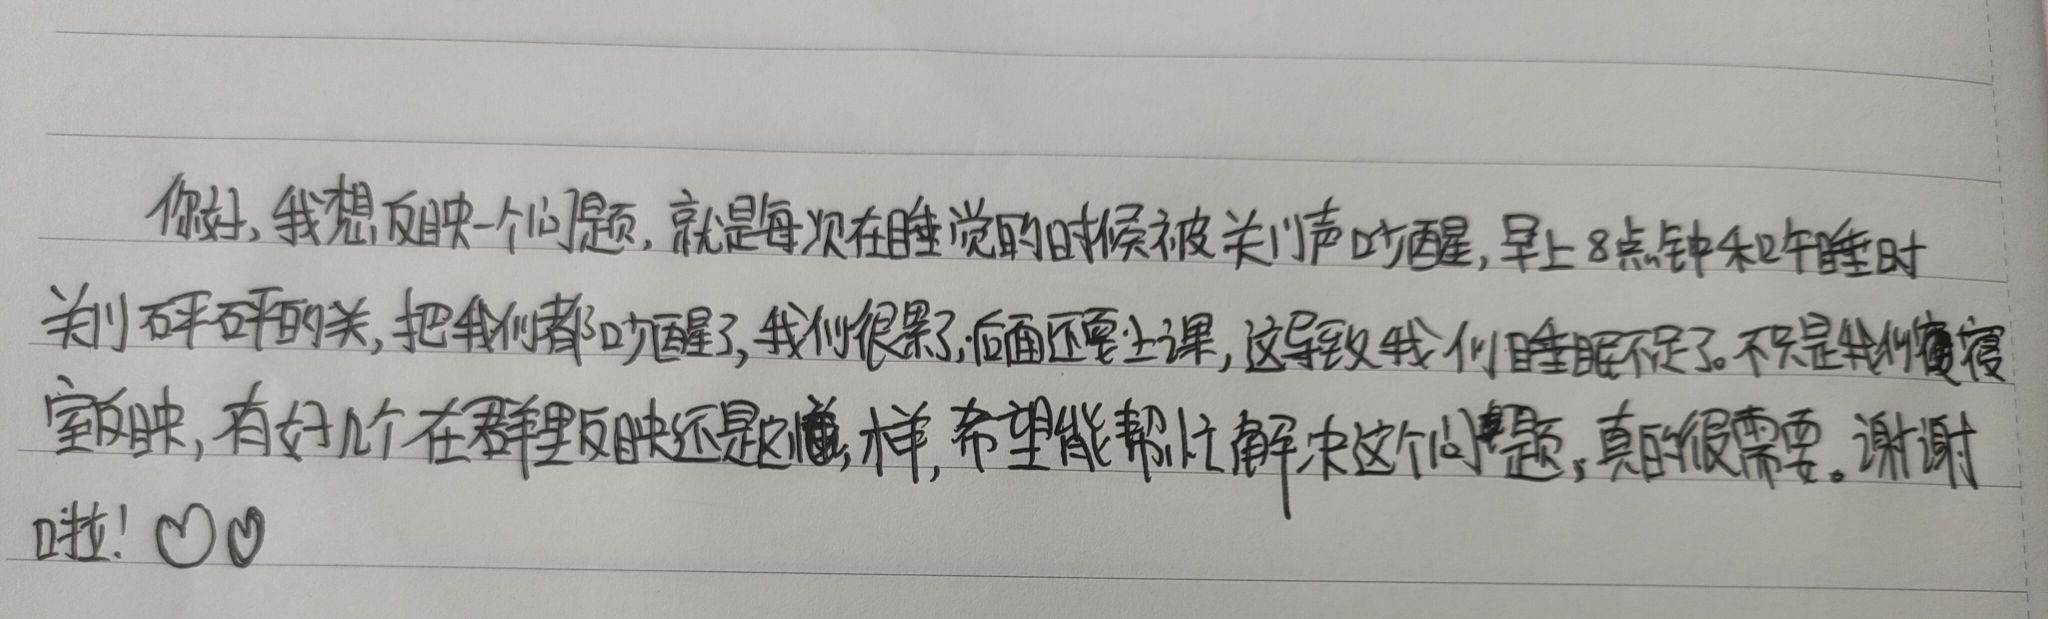 你好,我想反映一个问题,就是每次在睡觉的时候被关门声吵醒,早上8点钟和午睡时
关门砰砰的关,把我们都吵醒了,我们很累了,后面还要上课,这导致我们睡眠不足了。不只是我们寝
室反映,有好几个在群里反映还是这样,希望能帮忙解决这个问题,真的很需要。谢谢
啦!♡♡